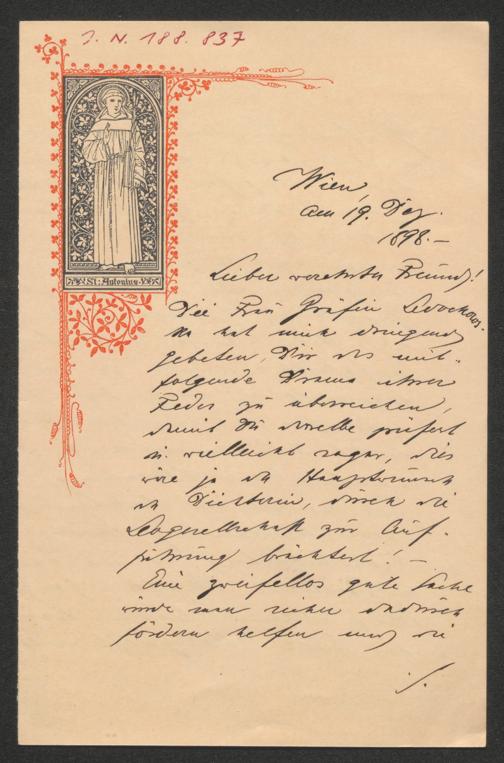 J. N. 188.837
St: Antonius
Wien,
am 19. Dez.
1898.–
Lieber verehrter Freund!
Die Frau Gräfin Ledochows-
ka hat mich dringend
gebeten, Dir das mit-
folgende Drama ihrer
Feder zu überreichen,
damit Du dasselbe prüfest
u. vielleicht sogar, dies
wäre ja der Hauptwunsch
der Dichterin, durch die
Leogesellschaft zur Auf-
führung brächtest! –
Eine zweifellos gute Sache
würde man sicher dadurch
fördern helfen und die